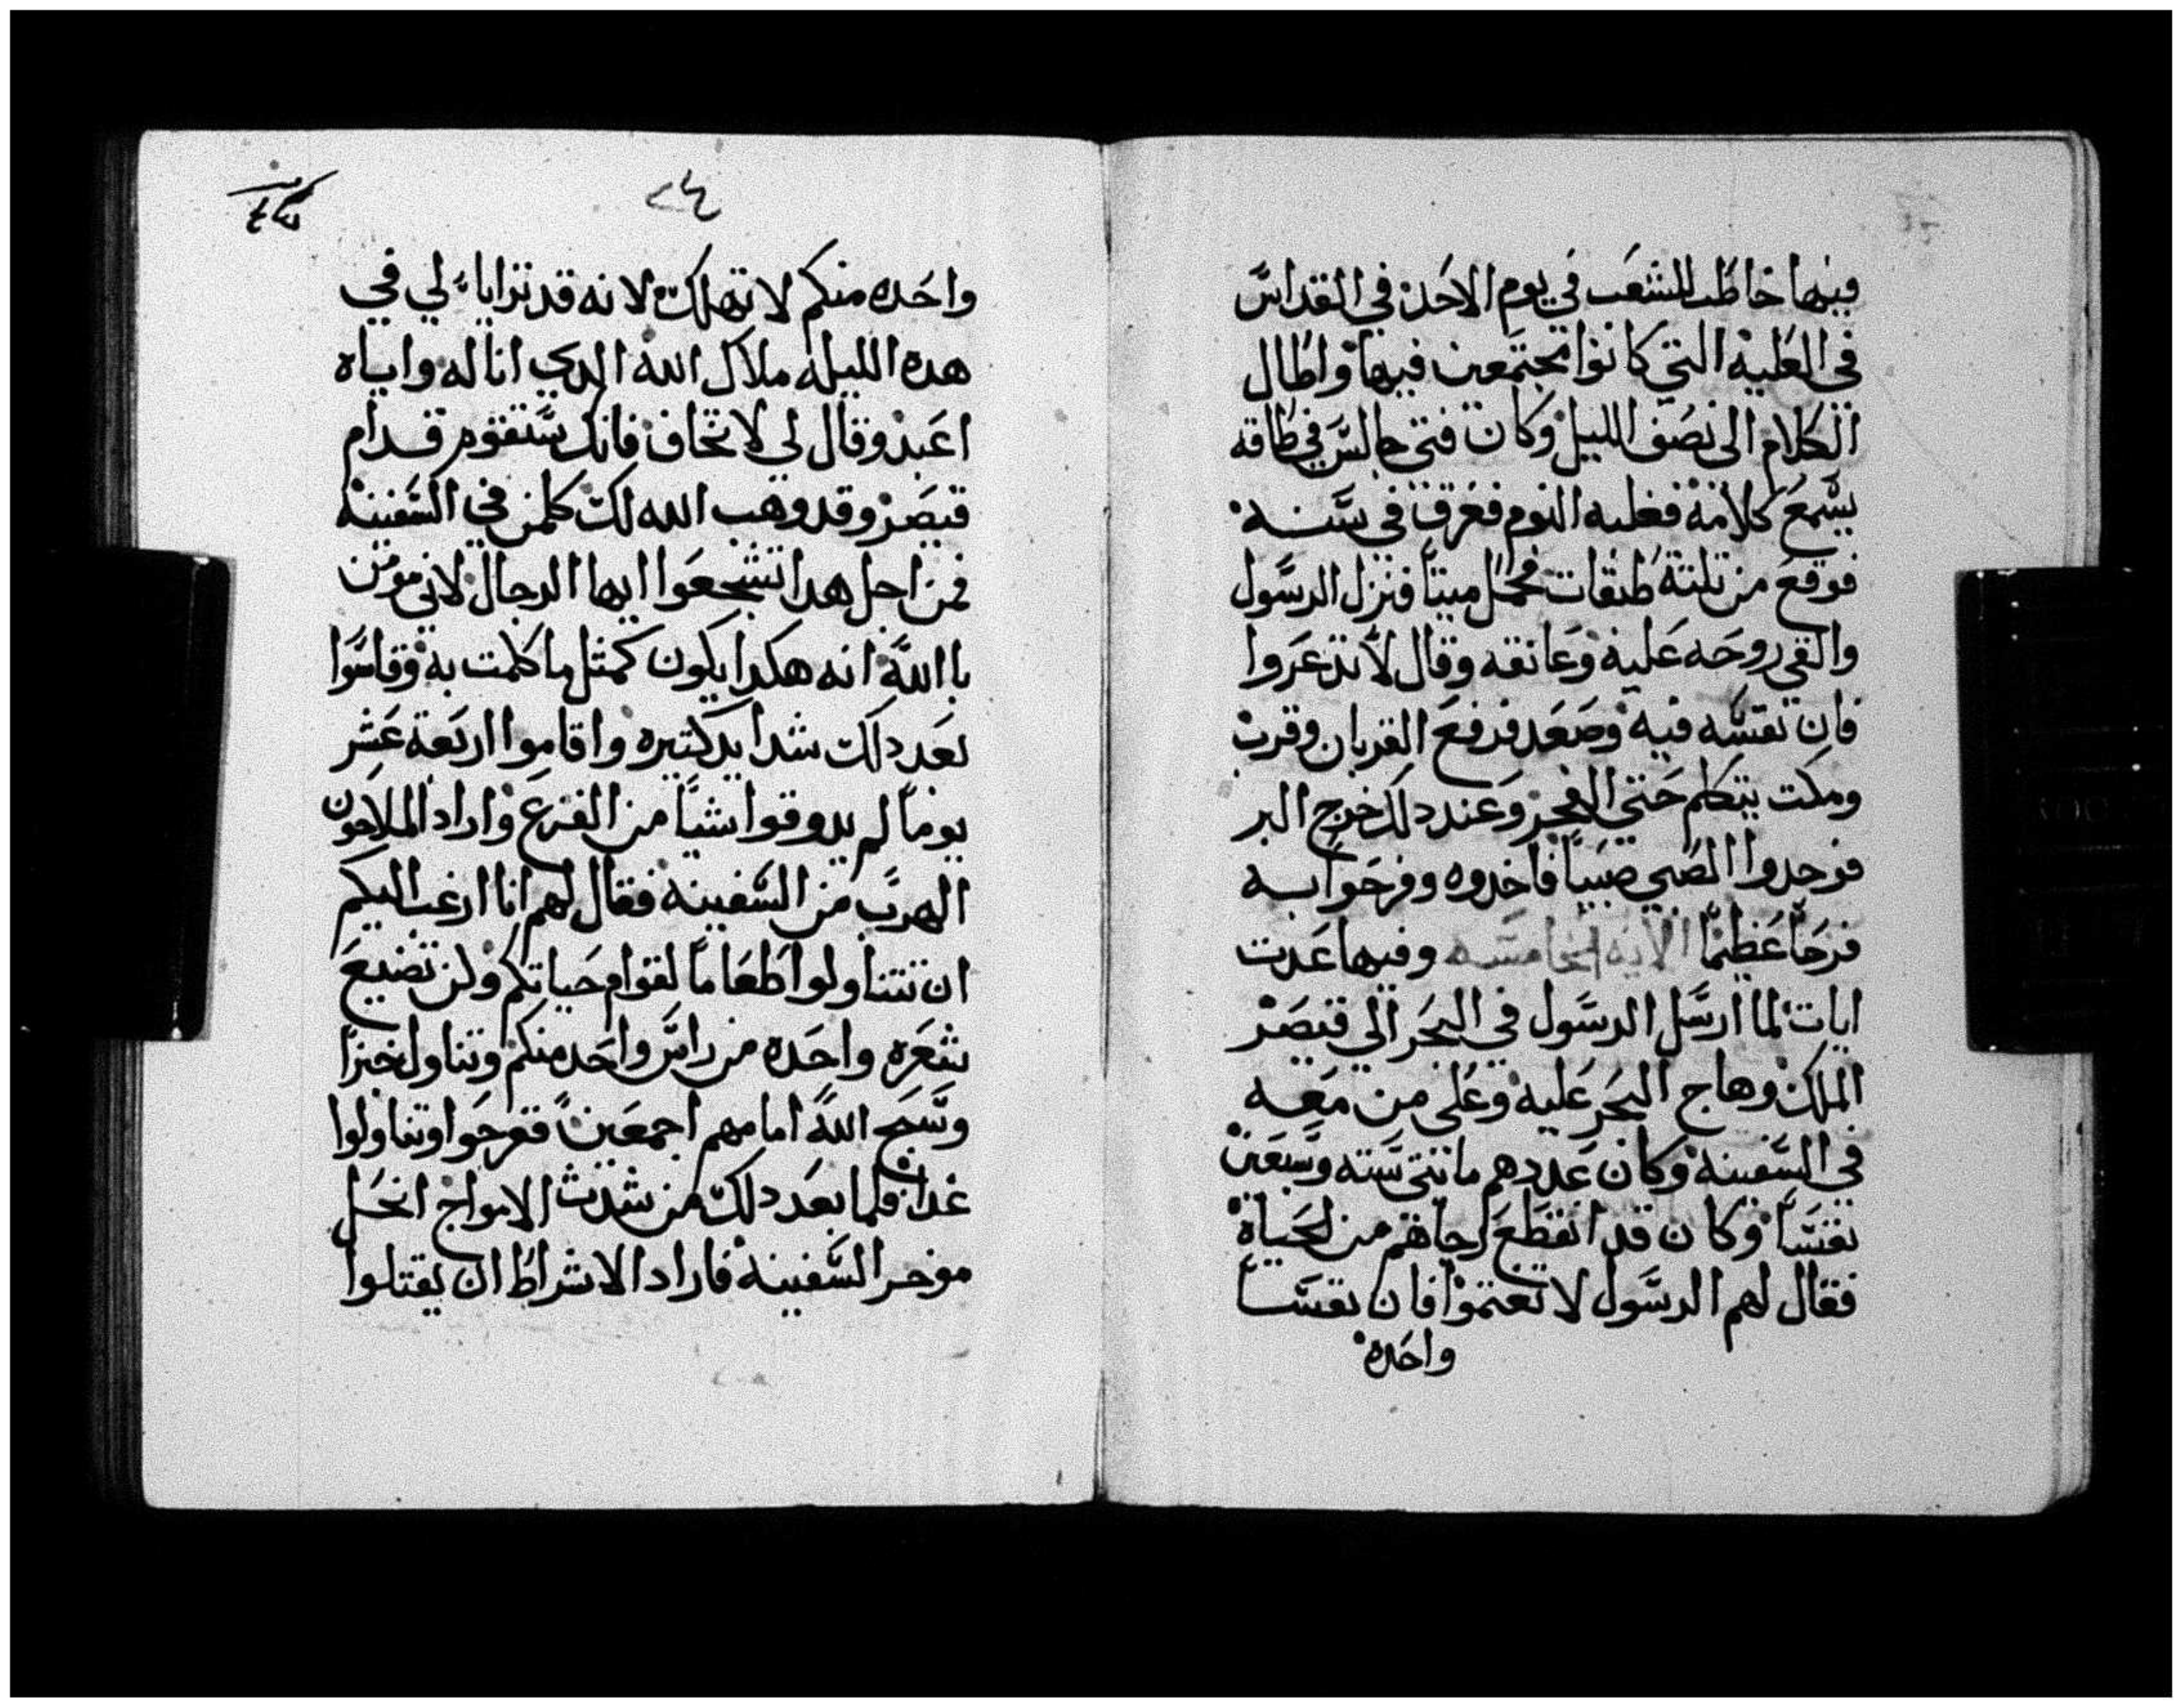 فيها خاطب الشعب في يوم الاحد في القداس
في العلية التي كانوا مجتمعين فيها واطال
الكلام الى نصف الليل وكان فتي جالس في طاقه
يسمع كلامه فغلبه النوم فغرق في سنه
فوقع من تلتة طبقات فحمل ميتاً فنزل الرسول
والقي روحه عليه وعانقه وقال لا تدعروا
فان نفسه فيه وصعد فرفع القربان وقرب
ومكت يتكلم حتي الفجر وعند دلك خرج البر
فوجدوا الصبي صبياً فاخدوه وفرحوا به
فرحاً عظيماً الايه الخامسه وفيها عدت
ايات لما ارسل الرسول في البحر الي قيصر
الملك وهاج البحر عليه وعلى من معه
في السفينه وكان عددهم مائتي سته وسبعين
نفساً وكان قد انقطع رجاهم من الحياة
فقال لهم الرسول لا تغتموا فان نفساً
واحده
٢٤
واحده منكم لا تهلك لانه قد ترايا لي في
هده الليله ملاك الله الدي انا له واياه
اعبد وقال لي لا تخاف فانك ستقوم قدام
قيصر وقد وهب الله لك كلمن في السفينه
فمن اجل هدا تشجعوا ايها الرجال لاني مومن
باالله انه هكدا يكون كمتل ما كلمت به وقاسوا
بعد دلك شدايد كتيره واقاموا اربعة عشر
يوماً لم يدوقوا شياً من الفزع واراد الملاحون
الهرب من السفينه فقال لهم انا ارغب اليكم
ان تتناولوا طعاماً لقوام حياتكم ولن تضيع
شعره واحده من راس واحد منكم وتناول خبزاً
وسبح الله امامهم اجمعين ففرحوا وتناولوا
غدا فلما بعد دلك من شدت الامواج انحل
موخر السفينه فاراد الاشراط ان يقتلوا